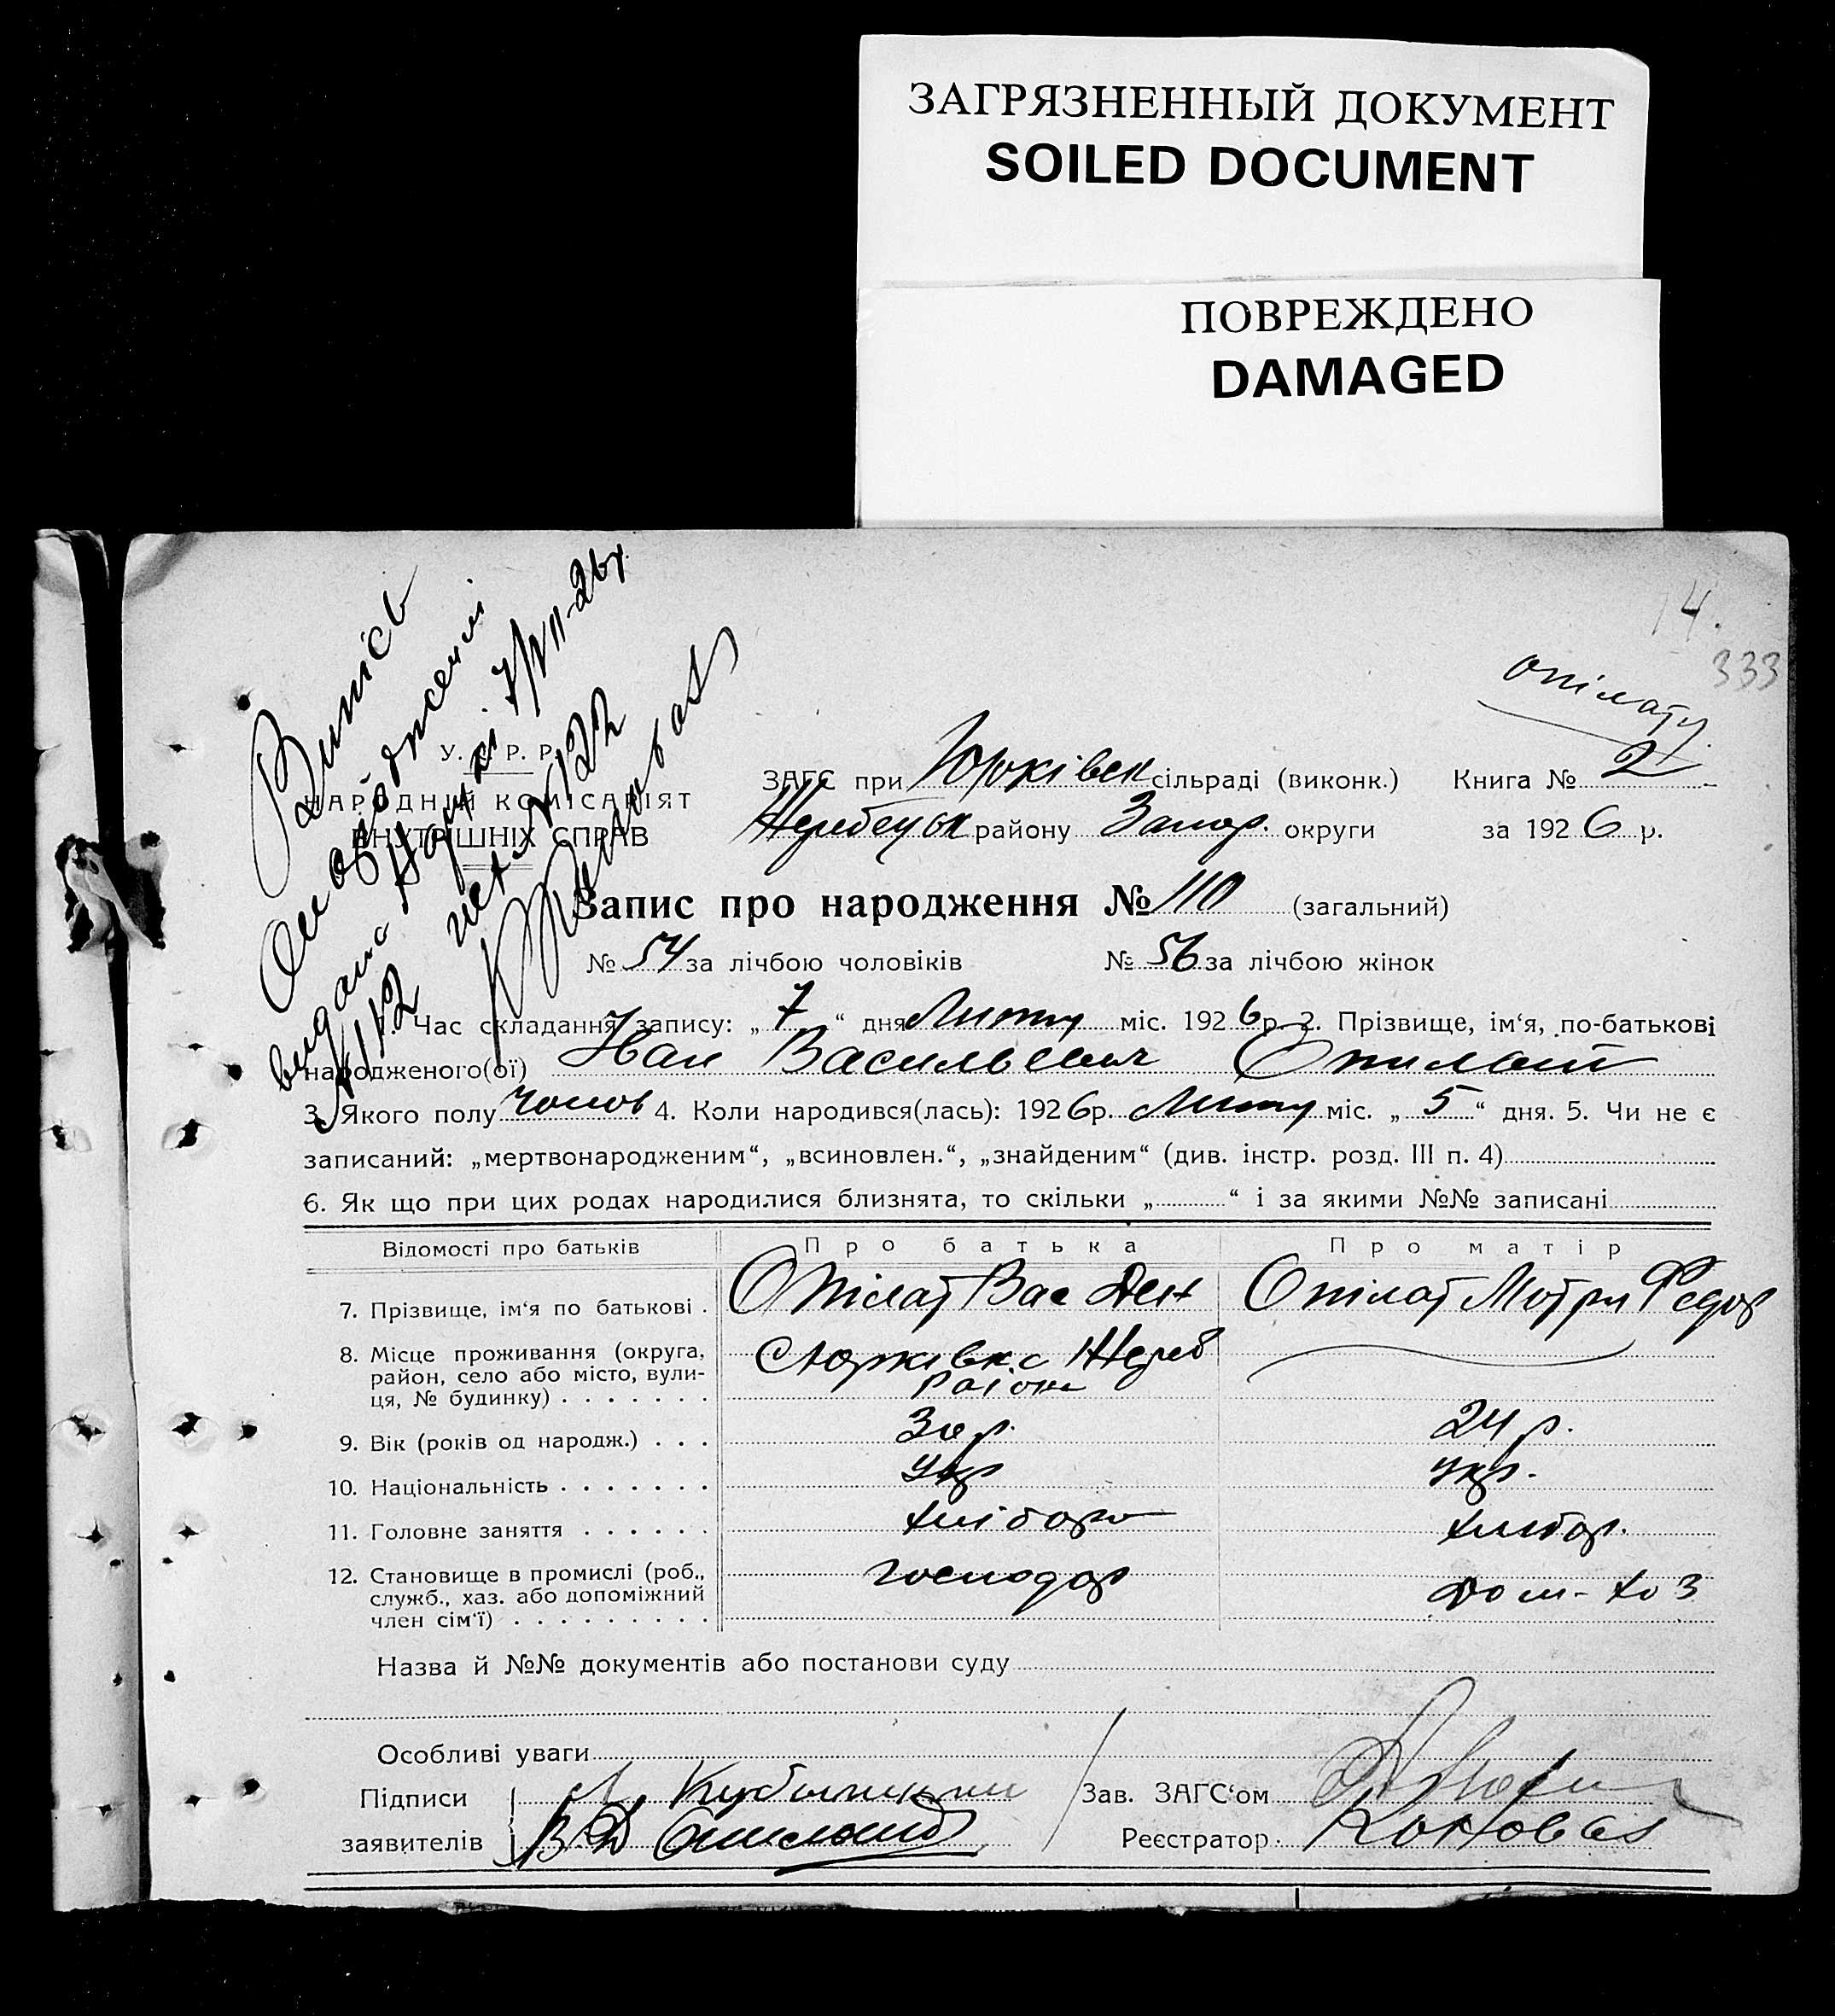 ЗАГРЯЗНЕННЫЙ ДОКУМЕНТ
SOILED DOCUMENT
ПОВРЕЖДЕНО
DAMAGED
14.
333
опілату
Випись
видана
7/VII-26р.
№ 112
№ 122
Коновал
У. С. Р. Р.
НАРОДНИЙ КОМІСАРІЯТ
ВНУТРІШНІХ СПРАВ
ЗАГС при Юрківск сільраді (виконк.) Книга № 2
Жеребецьк району Запор. округи за 1926 р.
Запис про народження № 110 (загальний)
№ 54 за лічбою чоловіків № 56 за лічбою жінок
1. Час складання запису: „7“ дня Люту міс. 1926 р. 2. Прізвище, ім‘я, по-батькові
народженого(ої) Иван Васильевич Опилат
3. Якого полу чолов 4. Коли народився(лась): 1926 р. Люту міс. „5“ дня. 5. Чи не є
записаний: „мертвонародженим“, „всиновлен.“, „знайденим“ (див. інстр. розд. III п. 4)
6. Як що при цих родах народилися близнята, то скільки „ “ і за якими №№ записані
Відомості про батьків Про батька Про матір
7. Прізвище, ім‘я по батькові . Опілат Вас Ден Опілат Мотря Федор
8. Місце проживання (округа, с Юрківк.с Жереб
район, село або місто, вули- район
ця, № будинку) . . . . . . .
9. Вік (років од народж.) . . . 30 р. 24 р.
10. Національність . . . . . . . Укр укр.
11. Головне заняття . . . . . . хлібор хлібор.
12. Становище в промислі (роб., господар дом-хоз
служб., хаз. або допоміжний
член сім‘ї) . . . . . . . . .
Назва й №№ документів або постанови суду
Особливі уваги
Підписи
Зав. ЗАГС‘ом
заявителів В Д Опилат Реєстратор Коновал